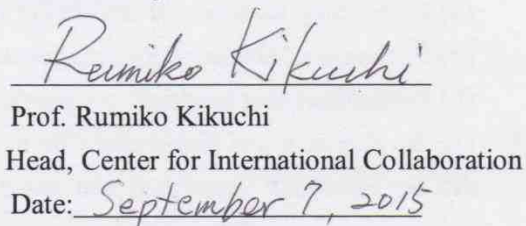 Rumiko Kikuchi
Prof. Rumiko Kikuchi
Head, Center for International Collaboration
Date: September 7, 2015